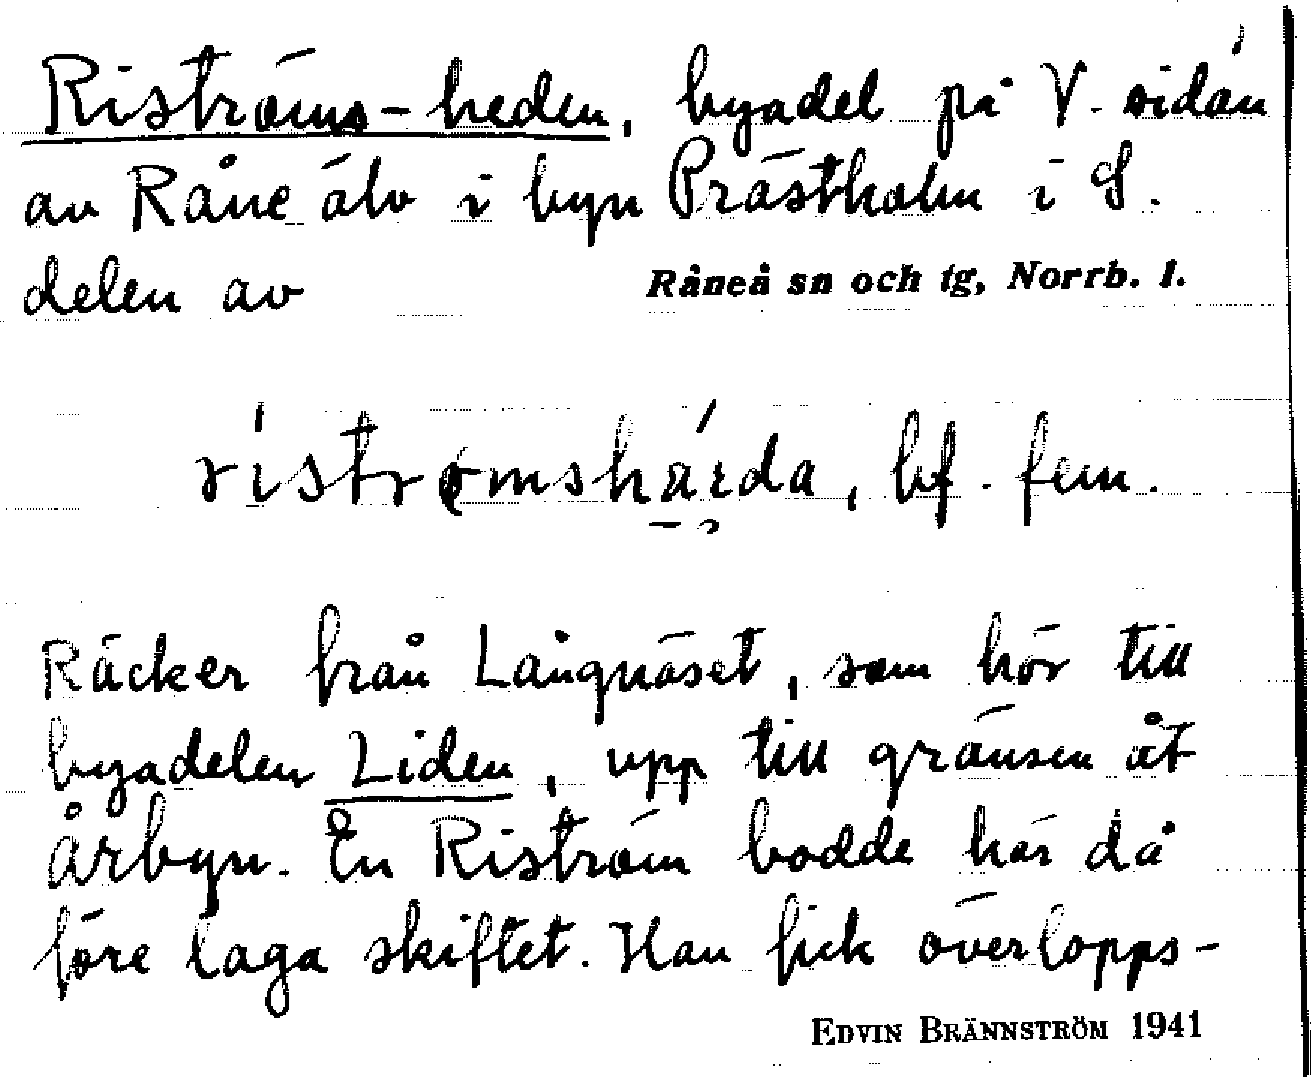 Riströms-heden, byadel på V. sidan
av Råne älv i byn Prästholm i S.
delen av Råneå sn och tg, Norrb. l.
ristrømshárda, bf. fem.
Räcker från Långnäset, som hör till
byadelen Liden, upp till gränsen åt
Årbyn. En Riström bodde här då
före laga skiftet. Han fick överlopps-
EDVIN BRÄNNSTRÖM 1941